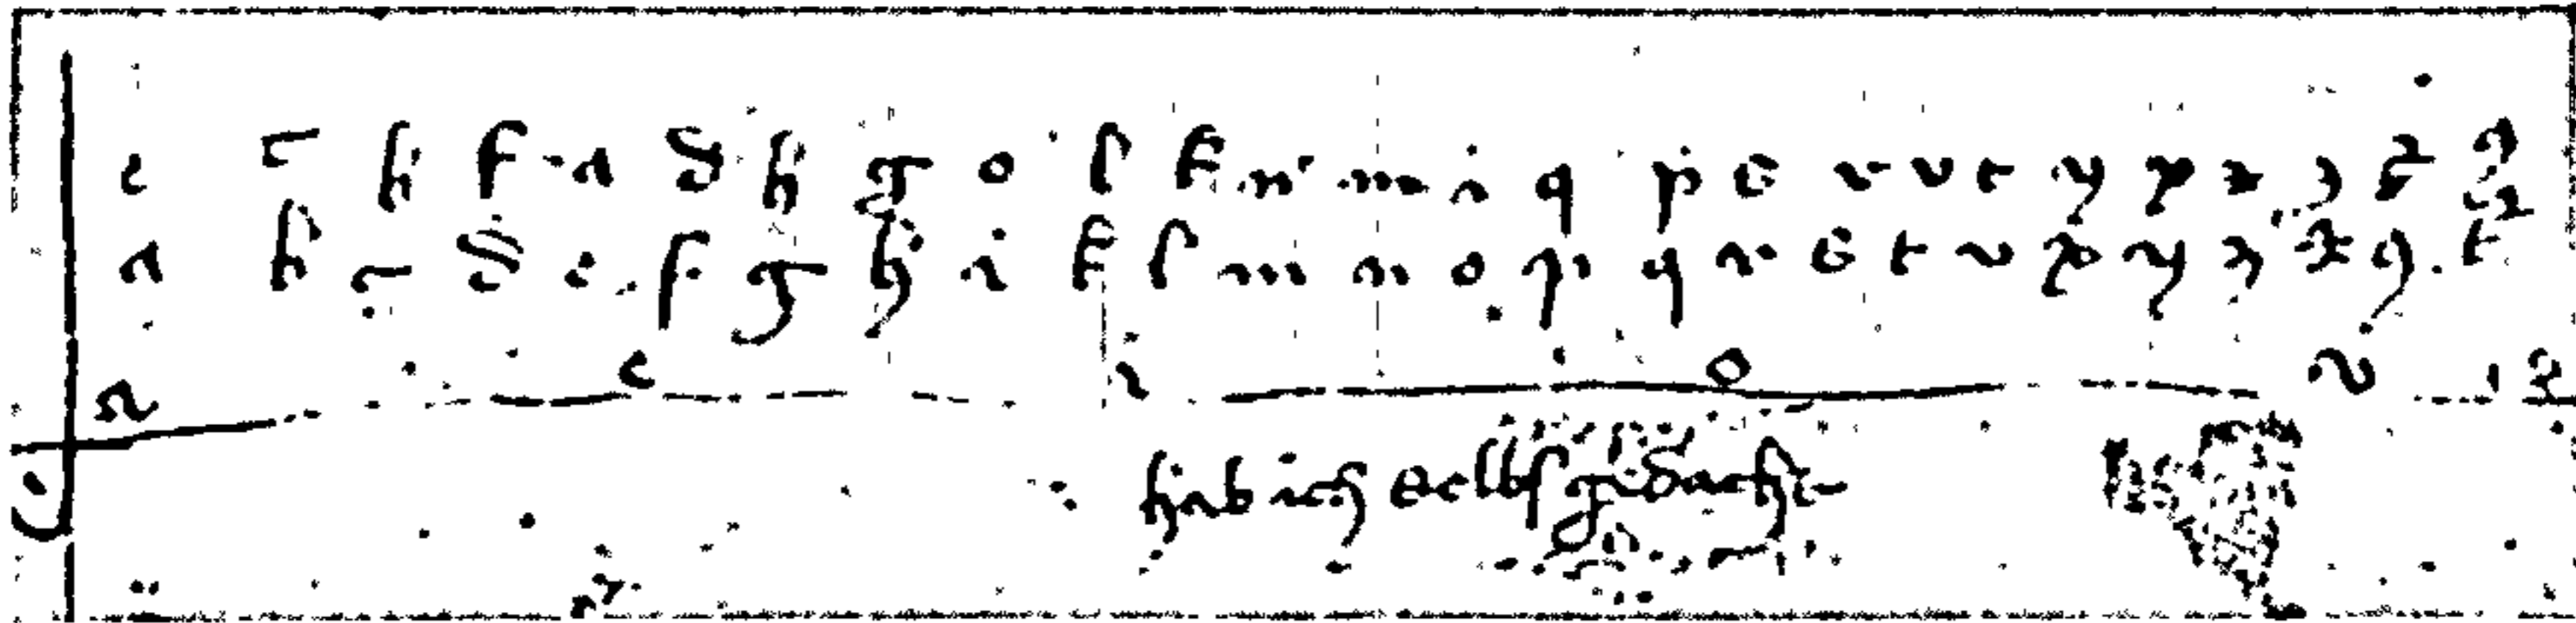 e c h f a d h g o l k n m i q p s r v t y x z
a b c d e f g h i k l m n o p q r s t v x y z
a e i o v
hab ich selbs gedacht